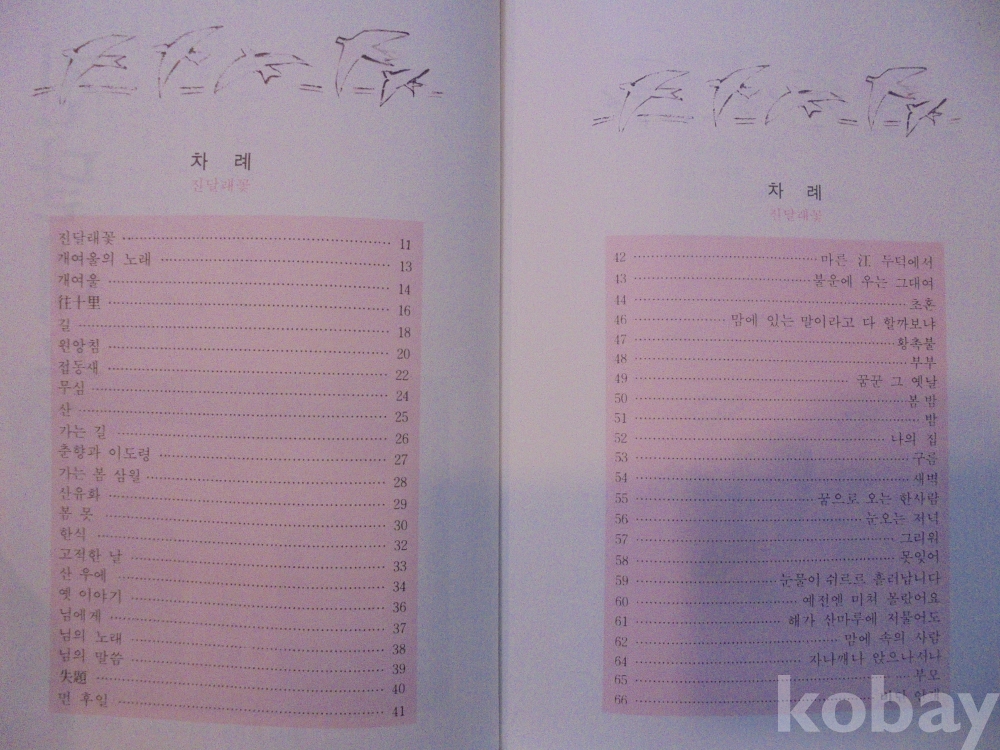 차 례
진달래꽃
진달래꽃 11
개여울의 노래 13
개여울 14
往十里 16
길 18
원앙침 20
접동새 22
무심 24
산 25
가는 길 26
춘향과 이도령 27
가는 봄 삼월 28
산유화 29
봄 못 30
한식 32
고적한 날 33
산 우에 34
옛 이야기 36
님에게 37
님의 노래 38
님의 말씀 39
失題 40
먼 후일 41
차 례
진달래꽃
42 마른 江 두덕에서
43 불운에 우는 그대여
44 초혼
46 맘에 있는 말이라고 다 할까보냐
47 황촉불
48 부부
49 꿈꾼 그 옛날
50 봄 밤
51 밤
52 나의 집
53 구름
54 새벽
55 꿈으로 오는 한사람
56 눈오는 저녁
57 그리워
58 못잊어
59 눈물이 쉬르르 흘러납니다
60 예전엔 미쳐 몰랐어요
61 해가 산마루에 저물어도
62 맘에 속의 사람
64 자나깨나 앉으나서나
65 부모
66
kobay